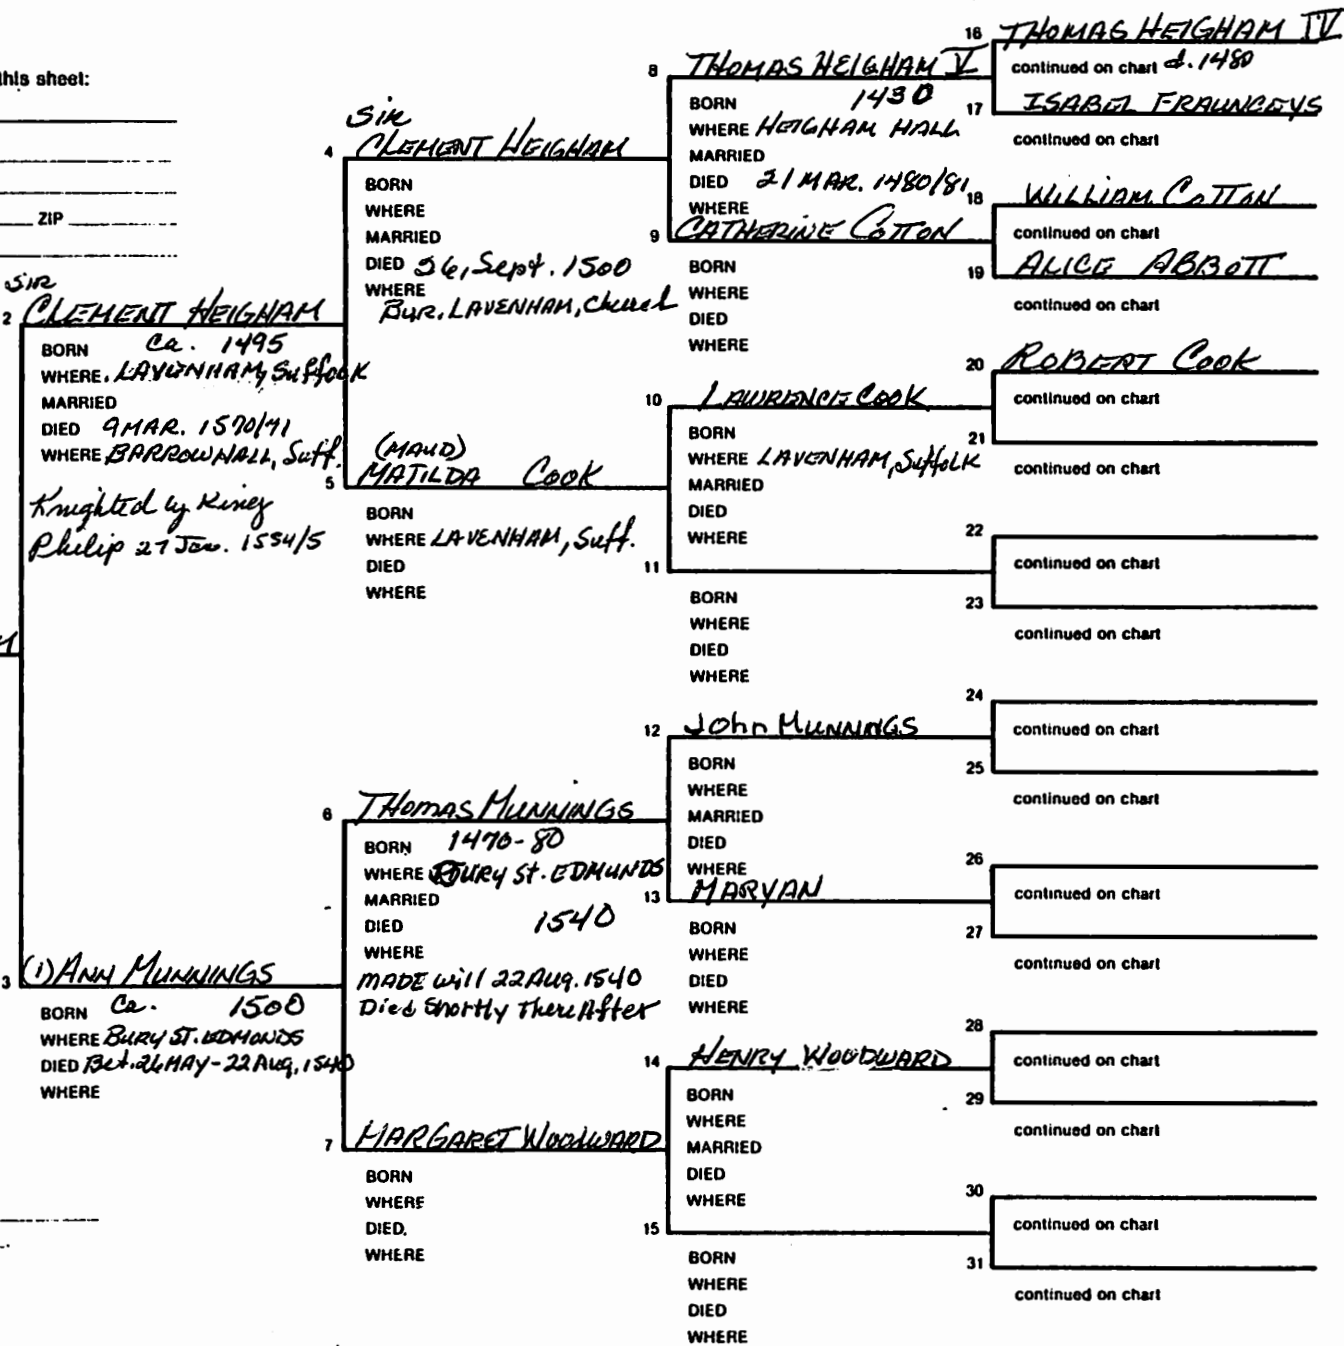 this sheet:
ZIP
SIR
2 CLEMENT HEIGHAM
BORN Ca. 1495
WHERE. LAVENHAM, Suffolk
MARRIED
DIED 9 MAR. 1570/71
WHERE BARROW HALL, Suff.
Knighted by King
Philip 27 Jan. 1554/5
3 (1) ANN MUNNINGS
BORN Ca. 1500
WHERE BURY ST. EDMONDS
DIED Bet. 26 MAY - 22 Aug, 1540
WHERE
Sir
4 CLEMENT HEIGHAM
BORN
WHERE
MARRIED
DIED 26, Sept. 1500
WHERE
Bur. LAVENHAM, Church
(MAUD)
5 MATILDA COOK
BORN
WHERE LAVENHAM, Suff.
DIED
WHERE
6 THOMAS MUNNINGS
BORN 1470-80
WHERE BURY St. EDMUNDS
MARRIED
DIED 1540
WHERE
MADE will 22 Aug. 1540
Died Shortly ThereAfter
7 MARGARET WOODWARD
BORN
WHERE
DIED.
WHERE
8 THOMAS HEIGHAM V
BORN 1430
WHERE HEIGHAM HALL
MARRIED
DIED 21 MAR. 1480/81
WHERE
9 CATHERINE COTTON
BORN
WHERE
DIED
WHERE
10 LAWRENCE COOK
BORN
WHERE LAVENHAM, Suffolk
MARRIED
DIED
WHERE
11
BORN
WHERE
DIED
WHERE
12 John MUNNINGS
BORN
WHERE
MARRIED
DIED
WHERE
13 MARYAN
BORN
WHERE
DIED
WHERE
14 HENRY WOODWARD
BORN
WHERE
MARRIED
DIED
WHERE
15
BORN
WHERE
DIED
WHERE
16 THOMAS HEIGHAM IV
continued on chart d. 1480
17 ISABEL FRAUNCEYS
continued on chart
18 WILLIAM COTTON
continued on chart
19 ALICE ABBOTT
continued on chart
20 ROBERT COOK
continued on chart
21
continued on chart
22
continued on chart
23
continued on chart
24
continued on chart
25
continued on chart
26
continued on chart
27
continued on chart
28
continued on chart
29
continued on chart
30
continued on chart
31
continued on chart